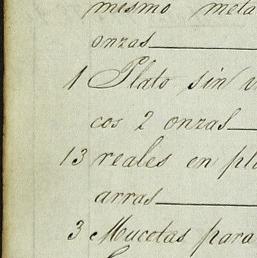 mesmo meta
onzas
1 Plato sin
cos 2 onzas
13 reales en pla
arras
3 Mucetas para